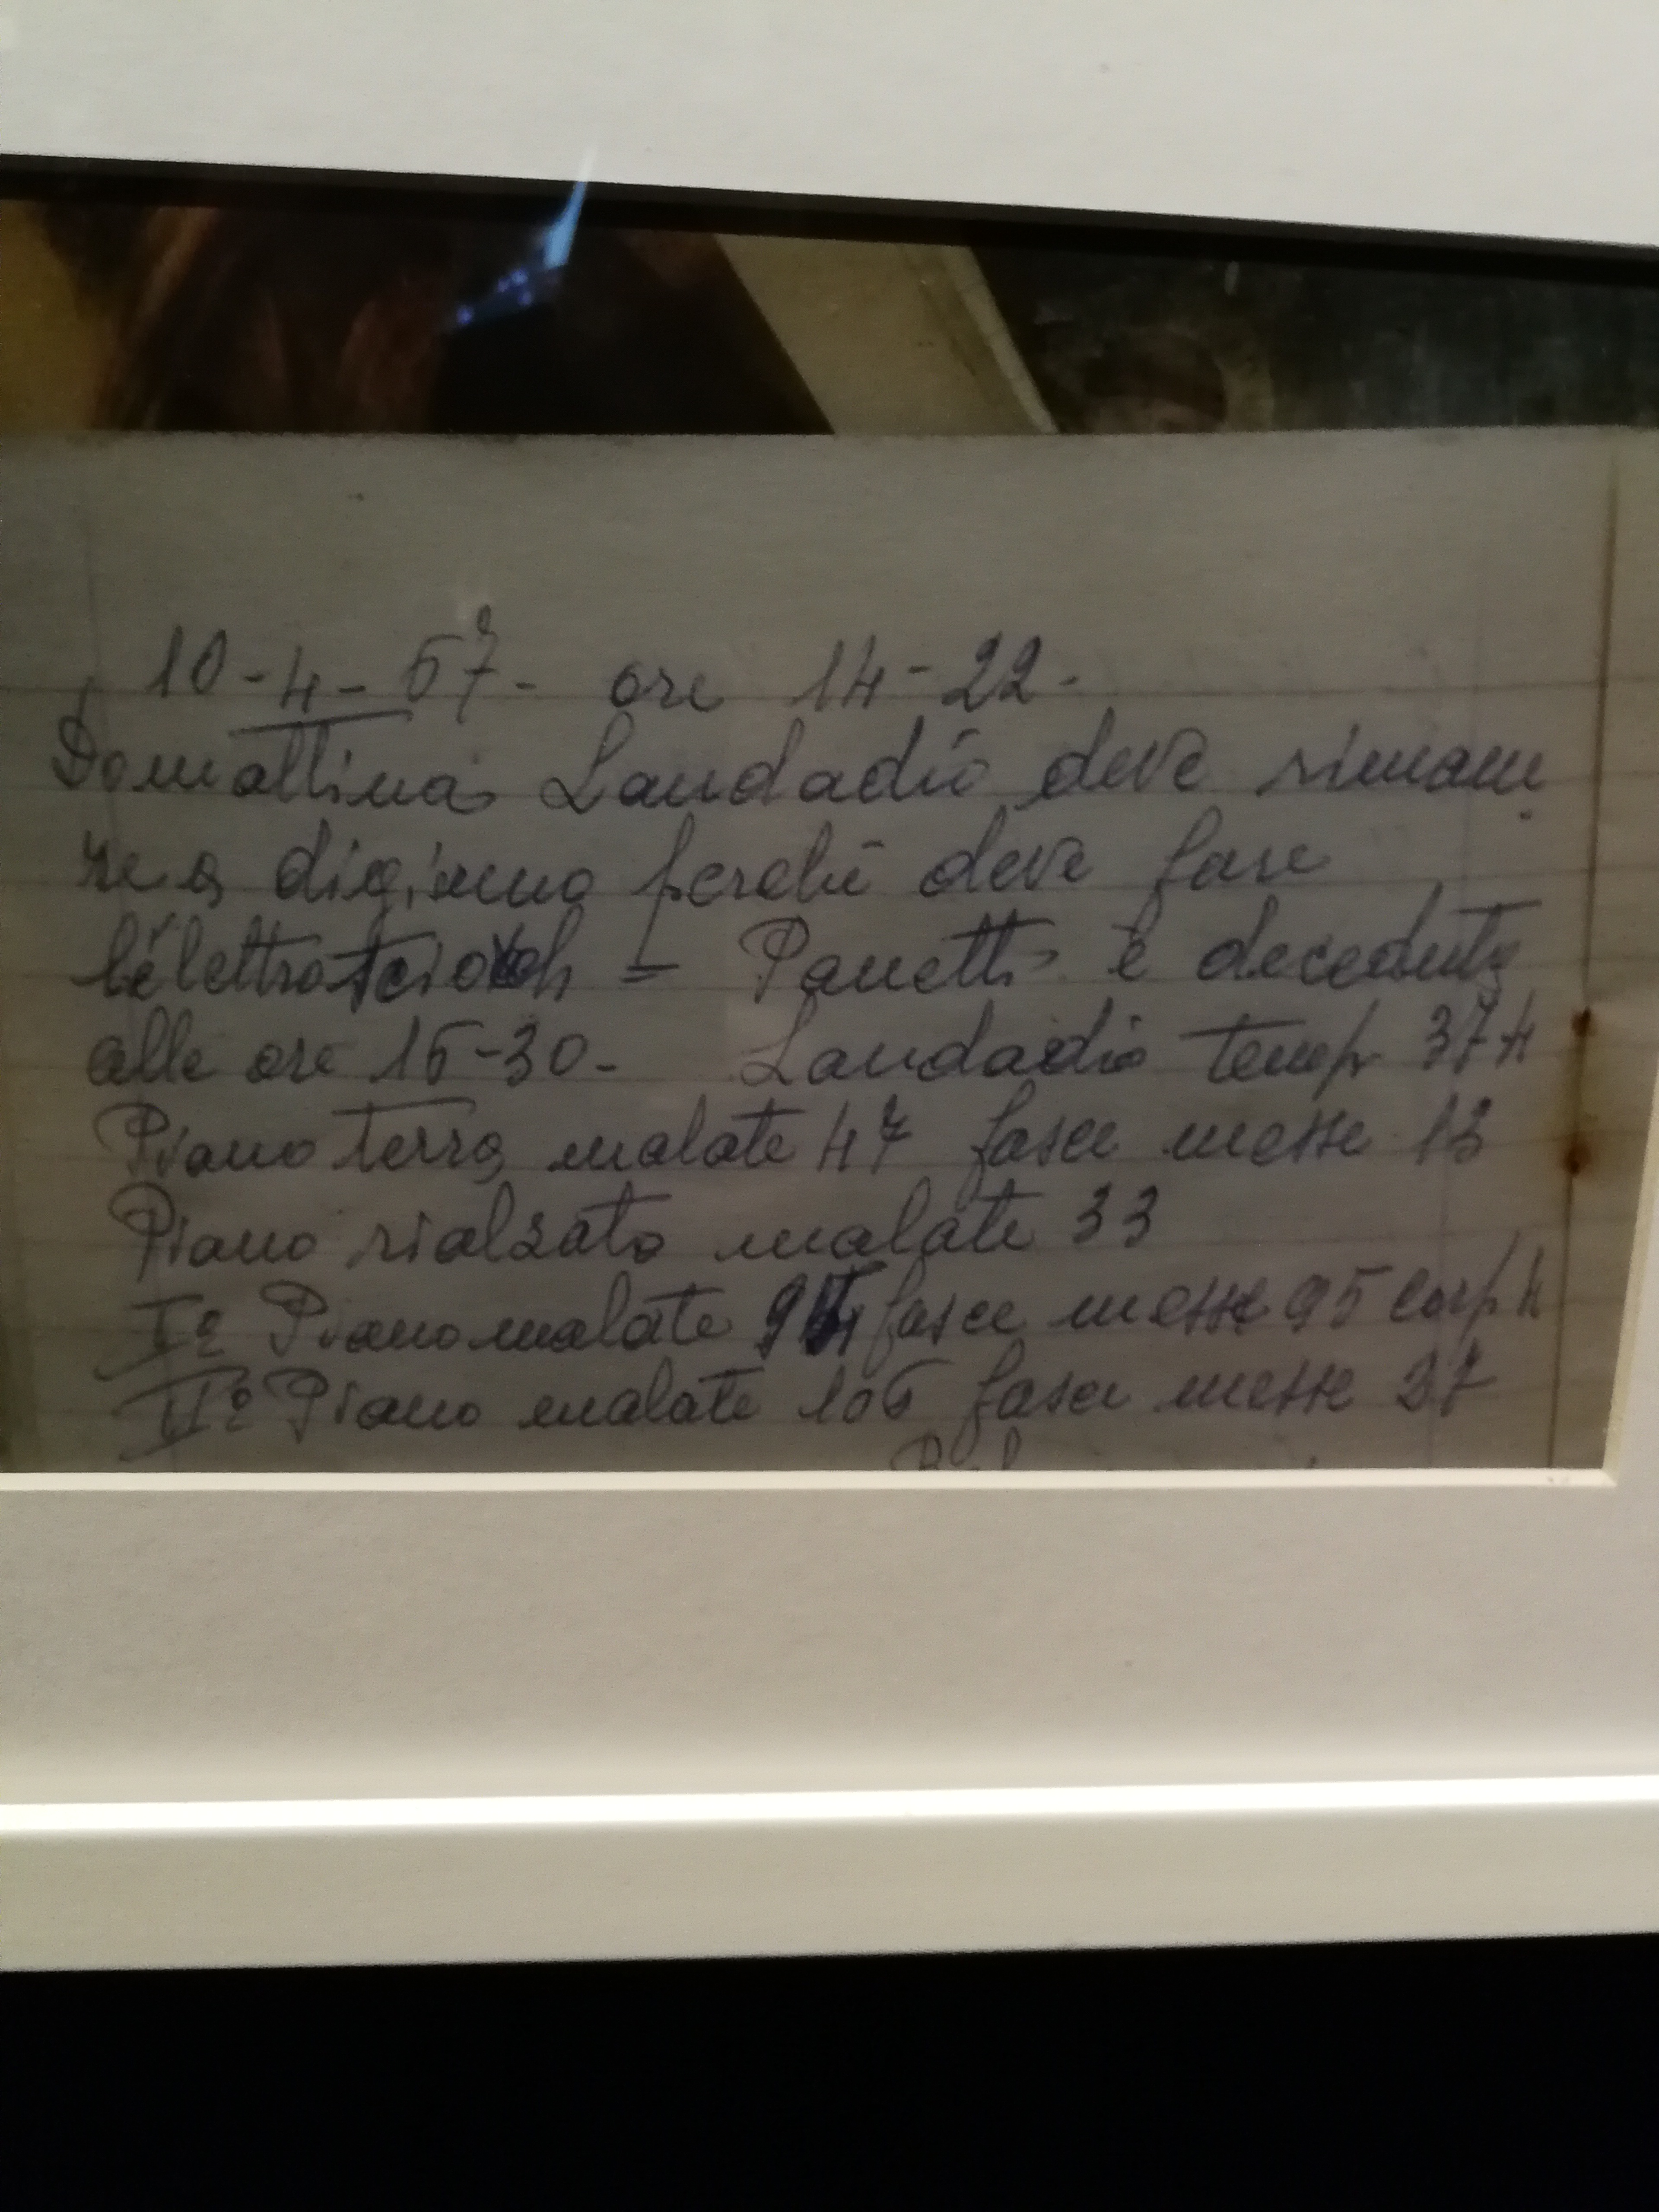 10-4-57- ore 14-22-
Domattina Laudadio deve rimane
re a digiuno perché deve fare
l'elettrosciok = Panetti è deceduta
alle ore 15-30- Laudadio temp 37 4
Piano terra malate 47 fasce messe 13
Piano rialzato malate 33
I° Piano malate 94 fasce messe 95 corp 4
II° Piano malate 106 fasce messe 37